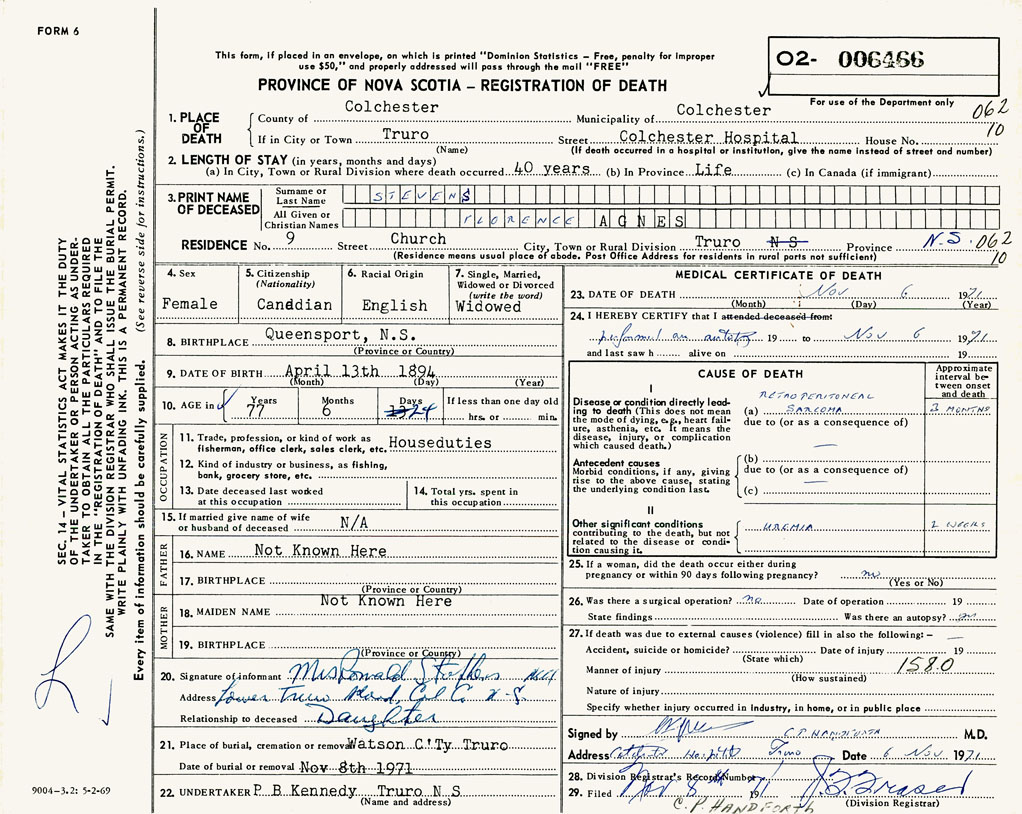 FORM 6
This form, if placed in an envelope, on which is printed "Dominion Statistics – Free, penalty for improper
use $50," and properly addressed will pass through the mail "FREE"
02- 006466
PROVINCE OF NOVA SCOTIA – REGISTRATION OF DEATH
For use of the Department only
1. PLACE OF DEATH
County of Colchester Municipality of Colchester 062
If in City or Town Truro Street Colchester Hospital House No. 10
(Name) (If death occurred in a hospital or institution, give the name instead of street and number)
2. LENGTH OF STAY (in years, months and days)
(a) In City, Town or Rural Division where death occurred 40 years (b) In Province Life (c) In Canada (if immigrant)
3. PRINT NAME OF DECEASED
Surname or Last Name STEVENS
All Given or Christian Names FLORENCE AGNES
RESIDENCE No. 9 Street Church City, Town or Rural Division Truro N S Province N.S. 062
(Residence means usual place of abode. Post Office Address for residents in rural parts not sufficient) 10
4. Sex
Female
5. Citizenship
(Nationality)
Canddian
6. Racial Origin
English
7. Single, Married,
Widowed or Divorced
(write the word)
Widowed
8. BIRTHPLACE Queensport, N.S.
(Province or Country)
9. DATE OF BIRTH April 13th 1894
(Month) (Day) (Year)
10. AGE in Years 77 Months 6 Days 24 If less than one day old
hrs. or min.
OCCUPATION
11. Trade, profession, or kind of work as
fisherman, office clerk, sales clerk, etc. Houseduties
12. Kind of industry or business, as fishing,
bank, grocery store, etc.
13. Date deceased last worked
at this occupation
14. Total yrs. spent in
this occupation
15. If married give name of wife
or husband of deceased N/A
FATHER
16. NAME Not Known Here
17. BIRTHPLACE
(Province or Country)
MOTHER
18. MAIDEN NAME Not Known Here
19. BIRTHPLACE
(Province or Country)
20. Signature of informant Mrs Ronald
Address Lower Truro Col Co N-S
Relationship to deceased Daughter
21. Place of burial, cremation or removal Watson C'Ty Truro
Date of burial or removal Nov 8th 1971
22. UNDERTAKER P B Kennedy Truro N S
(Name and address)
MEDICAL CERTIFICATE OF DEATH
23. DATE OF DEATH Nov 6 1971
(Month) (Day) (Year)
24. I HEREBY CERTIFY that I attended deceased from:
performed an autopsy 19 to Nov 6 1971
and last saw h alive on 19
CAUSE OF DEATH
Approximate
interval be-
tween onset
and death
I
Disease or condition directly lead-
ing to death (This does not mean
the mode of dying, e.g., heart fail-
ure, asthenia, etc. It means the
disease, injury, or complication
which caused death.)
RETROPERITONEAL
(a) SARCOMA 3 MONTHS
due to (or as a consequence of)
—
Antecedent causes
Morbid conditions, if any, giving
rise to the above cause, stating
the underlying condition last.
(b)
due to (or as a consequence of)
—
(c)
II
Other significant conditions
contributing to the death, but not
related to the disease or condi-
tion causing it.
UREMIA 2 WEEKS
25. If a woman, did the death occur either during
pregnancy or within 90 days following pregnancy? no
(Yes or No)
26. Was there a surgical operation? no Date of operation 19
State findings Was there an autopsy?
27. If death was due to external causes (violence) fill in also the following: –
Accident, suicide or homicide? Date of injury 19
(State which)
Manner of injury 1580
(How sustained)
Nature of injury
Specify whether injury occurred in industry, in home, or in public place
Signed by C.P. HANDFORTH M.D.
Address Colchester Hospital Truro Date 6 Nov 1971
28. Division Registrar's Record Number
29. Filed Nov 8 1971 J. G. Fraser
C.P. HANDFORTH (Division Registrar)
SEC. 14 – VITAL STATISTICS ACT MAKES IT THE DUTY
OF THE UNDERTAKER OR PERSON ACTING AS UNDER-
TAKER TO OBTAIN ALL THE PARTICULARS REQUIRED
IN THE "REGISTRATION OF DEATH" AND TO FILE THE
SAME WITH THE DIVISION REGISTRAR WHO SHALL ISSUE THE BURIAL PERMIT.
WRITE PLAINLY WITH UNFADING INK. THIS IS A PERMANENT RECORD.
Every item of information should be carefully supplied. (See reverse side for instructions.)
9004–3.2: 5-2-69